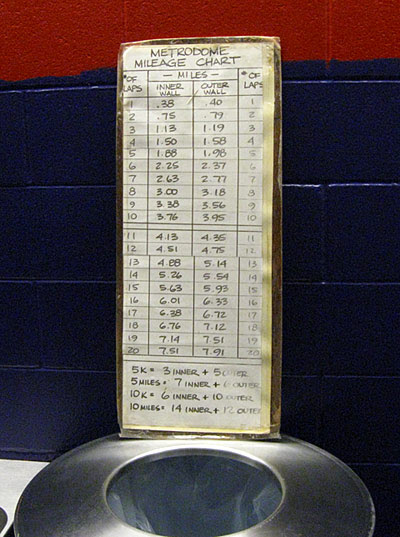 METRODOME
MILEAGE CHART
# OF LAPS — MILES — # OF LAPS
INNER WALL OUTER WALL
1 .38 .40 1
2 .75 .79 2
3 1.13 1.19 3
4 1.50 1.58 4
5 1.88 1.98 5
6 2.25 2.37 6
7 2.63 2.77 7
8 3.00 3.18 8
9 3.38 3.56 9
10 3.76 3.95 10
11 4.13 4.35 11
12 4.51 4.75 12
13 4.88 5.14 13
14 5.26 5.54 14
15 5.63 5.93 15
16 6.01 6.33 16
17 6.38 6.72 17
18 6.76 7.12 18
19 7.14 7.51 19
20 7.51 7.91 20
5K = 3 INNER + 5 OUTER
5 MILES = 7 INNER + 6 OUTER
10K = 6 INNER + 10 OUTER
10 MILES = 14 INNER + 12 OUTER